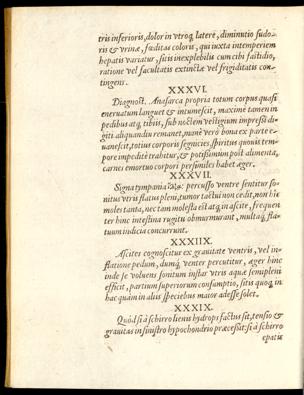 tris inferioris, dolor in vtroq́ latere, diminutio sudo-
ris & vrinæ, fœditas coloris, qui iuxta intemperiem
hepatis variatur, sitis inexplebilis cum cibi fastidio,
ratione vel facultatis extinctæ vel frigiditatis con-
tingens.
XXXVI.
Diagnost. Anasarca propria totum corpus quasi
eneruatum languet & intumescit, maximè tamen in
pedibus atq́ tibiis, sub noctem vestigium impressi di-
giti aliquandiu remanet, manè verò bona ex parte e-
uanescit, totius corporis segnicies, spiritus quouis tem-
pore impeditè trahitur, & potissimùm post alimenta,
carnes emortuo corpori persimiles habet æger.
XXXVII.
Signa tympaniæ percusso ventre sentitur so-
nitus vtris flatus pleni, tumor tactui non cedit, non hic
moles tanta, nec tam molesta est atq́ in ascite, frequen-
ter hinc intestina rugitu obmurmurant, multaq́ fla-
tuum indicia concurrunt.
XXXIIX.
Ascites cognoscitur ex grauitate ventris, vel in-
flatione pedum, dumq́ venter percutitur, æger hinc
inde se voluens sonitum instar vtris aquæ semipleni
efficit, partium superiorum consumptio, sitis quoq́ in
hac quàm in aliis speciebus maior adesse solet.
XXXIX.
Quòd si à schirro lienis hydrops factus sit, tensio &
grauitas in sinistro hypochondrio præcessit: si à schirro
epatis